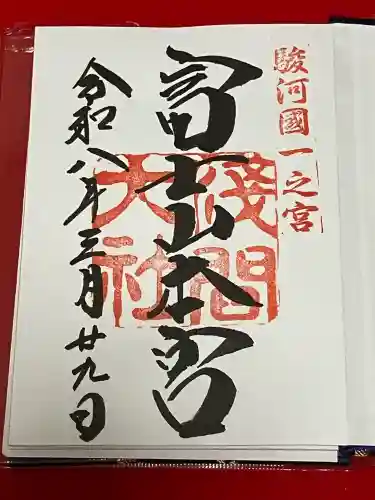 駿河國一之宮
富士山本宮
淺間大社
令和八年三月廿九日